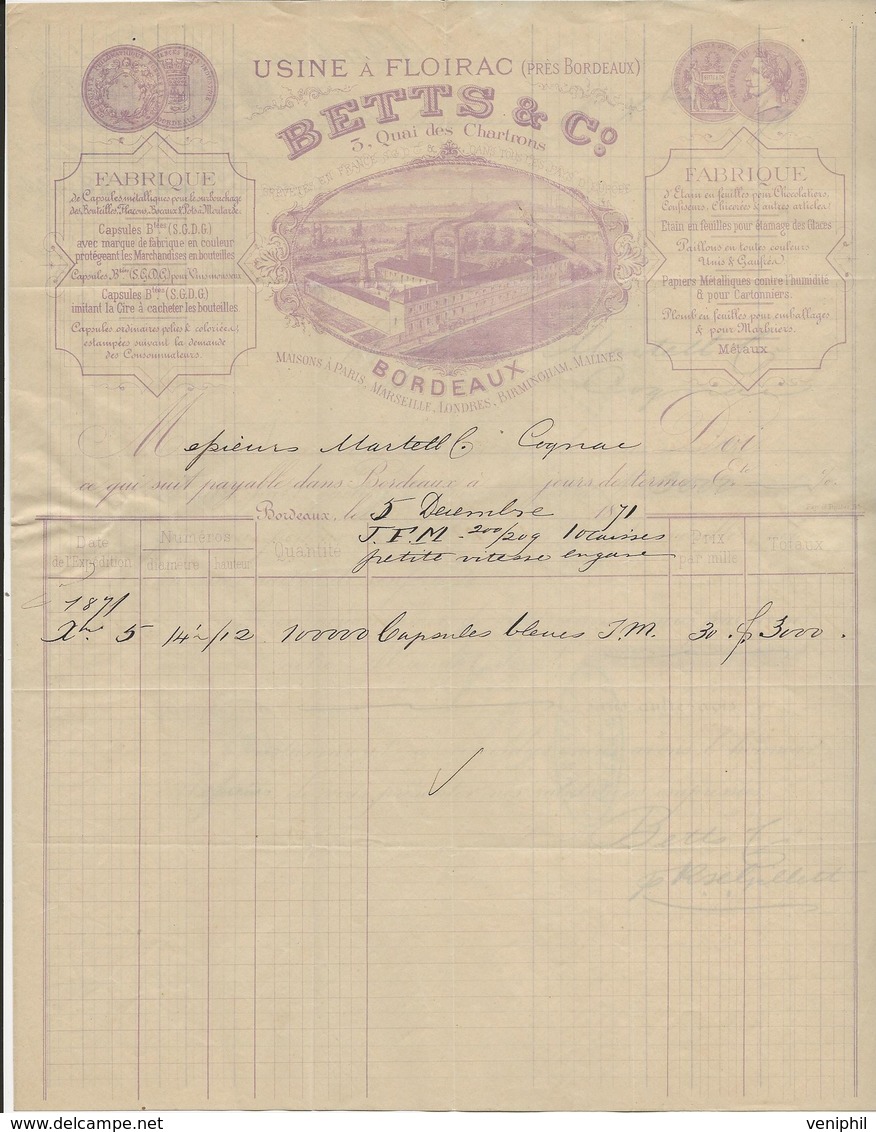 USINE À FLOIRAC (PRÈS BORDEAUX)
BETTS & Cº
3, Quai des Chartrons
FABRIQUE
de Capsules métalliques pour le surbouchage
des Bouteilles, Flacons, Bocaux & Pots à Moutarde.
Capsules Btées (S.G.D.G.)
avec marque de fabrique en couleur
protégeant les Marchandises en bouteilles
Capsules Btées (S.G.D.G.) pour Vins mousseux
Capsules Btées (S.G.D.G.)
imitant la Cire à cacheter les bouteilles.
Capsules ordinaires polies & coloriées,
estampées suivant la demande
des Consommateurs.
FABRIQUE
d'Etain en feuilles pour Chocolatiers,
Confiseurs, Chicorées & autres articles.
Etain en feuilles pour étamage des Glaces
Paillons en toutes couleurs
Unis & Gaufrés.
Papiers Métalliques contre l'humidité
& pour Cartonniers.
Plomb en feuilles pour emballages
& pour Marbriers.
Métaux
BORDEAUX
MAISONS À PARIS, MARSEILLE, LONDRES, BIRMINGHAM, MALINES
Messieurs Martell C. Cognac Doi
ce qui suit payable dans Bordeaux à jours de terme, Cte %
Bordeaux, le 5 Decembre 1871
J.F.M 200/209 10 caisses
petite vitesse en gare
Date de l'Expédition Numéros diamètre hauteur Quantité Prix par mille Totaux
1871
Xbre 5 14 1/2 /12 100000 Capsules bleues J.M. 30. f. 3000.
Betts C.
veniphil